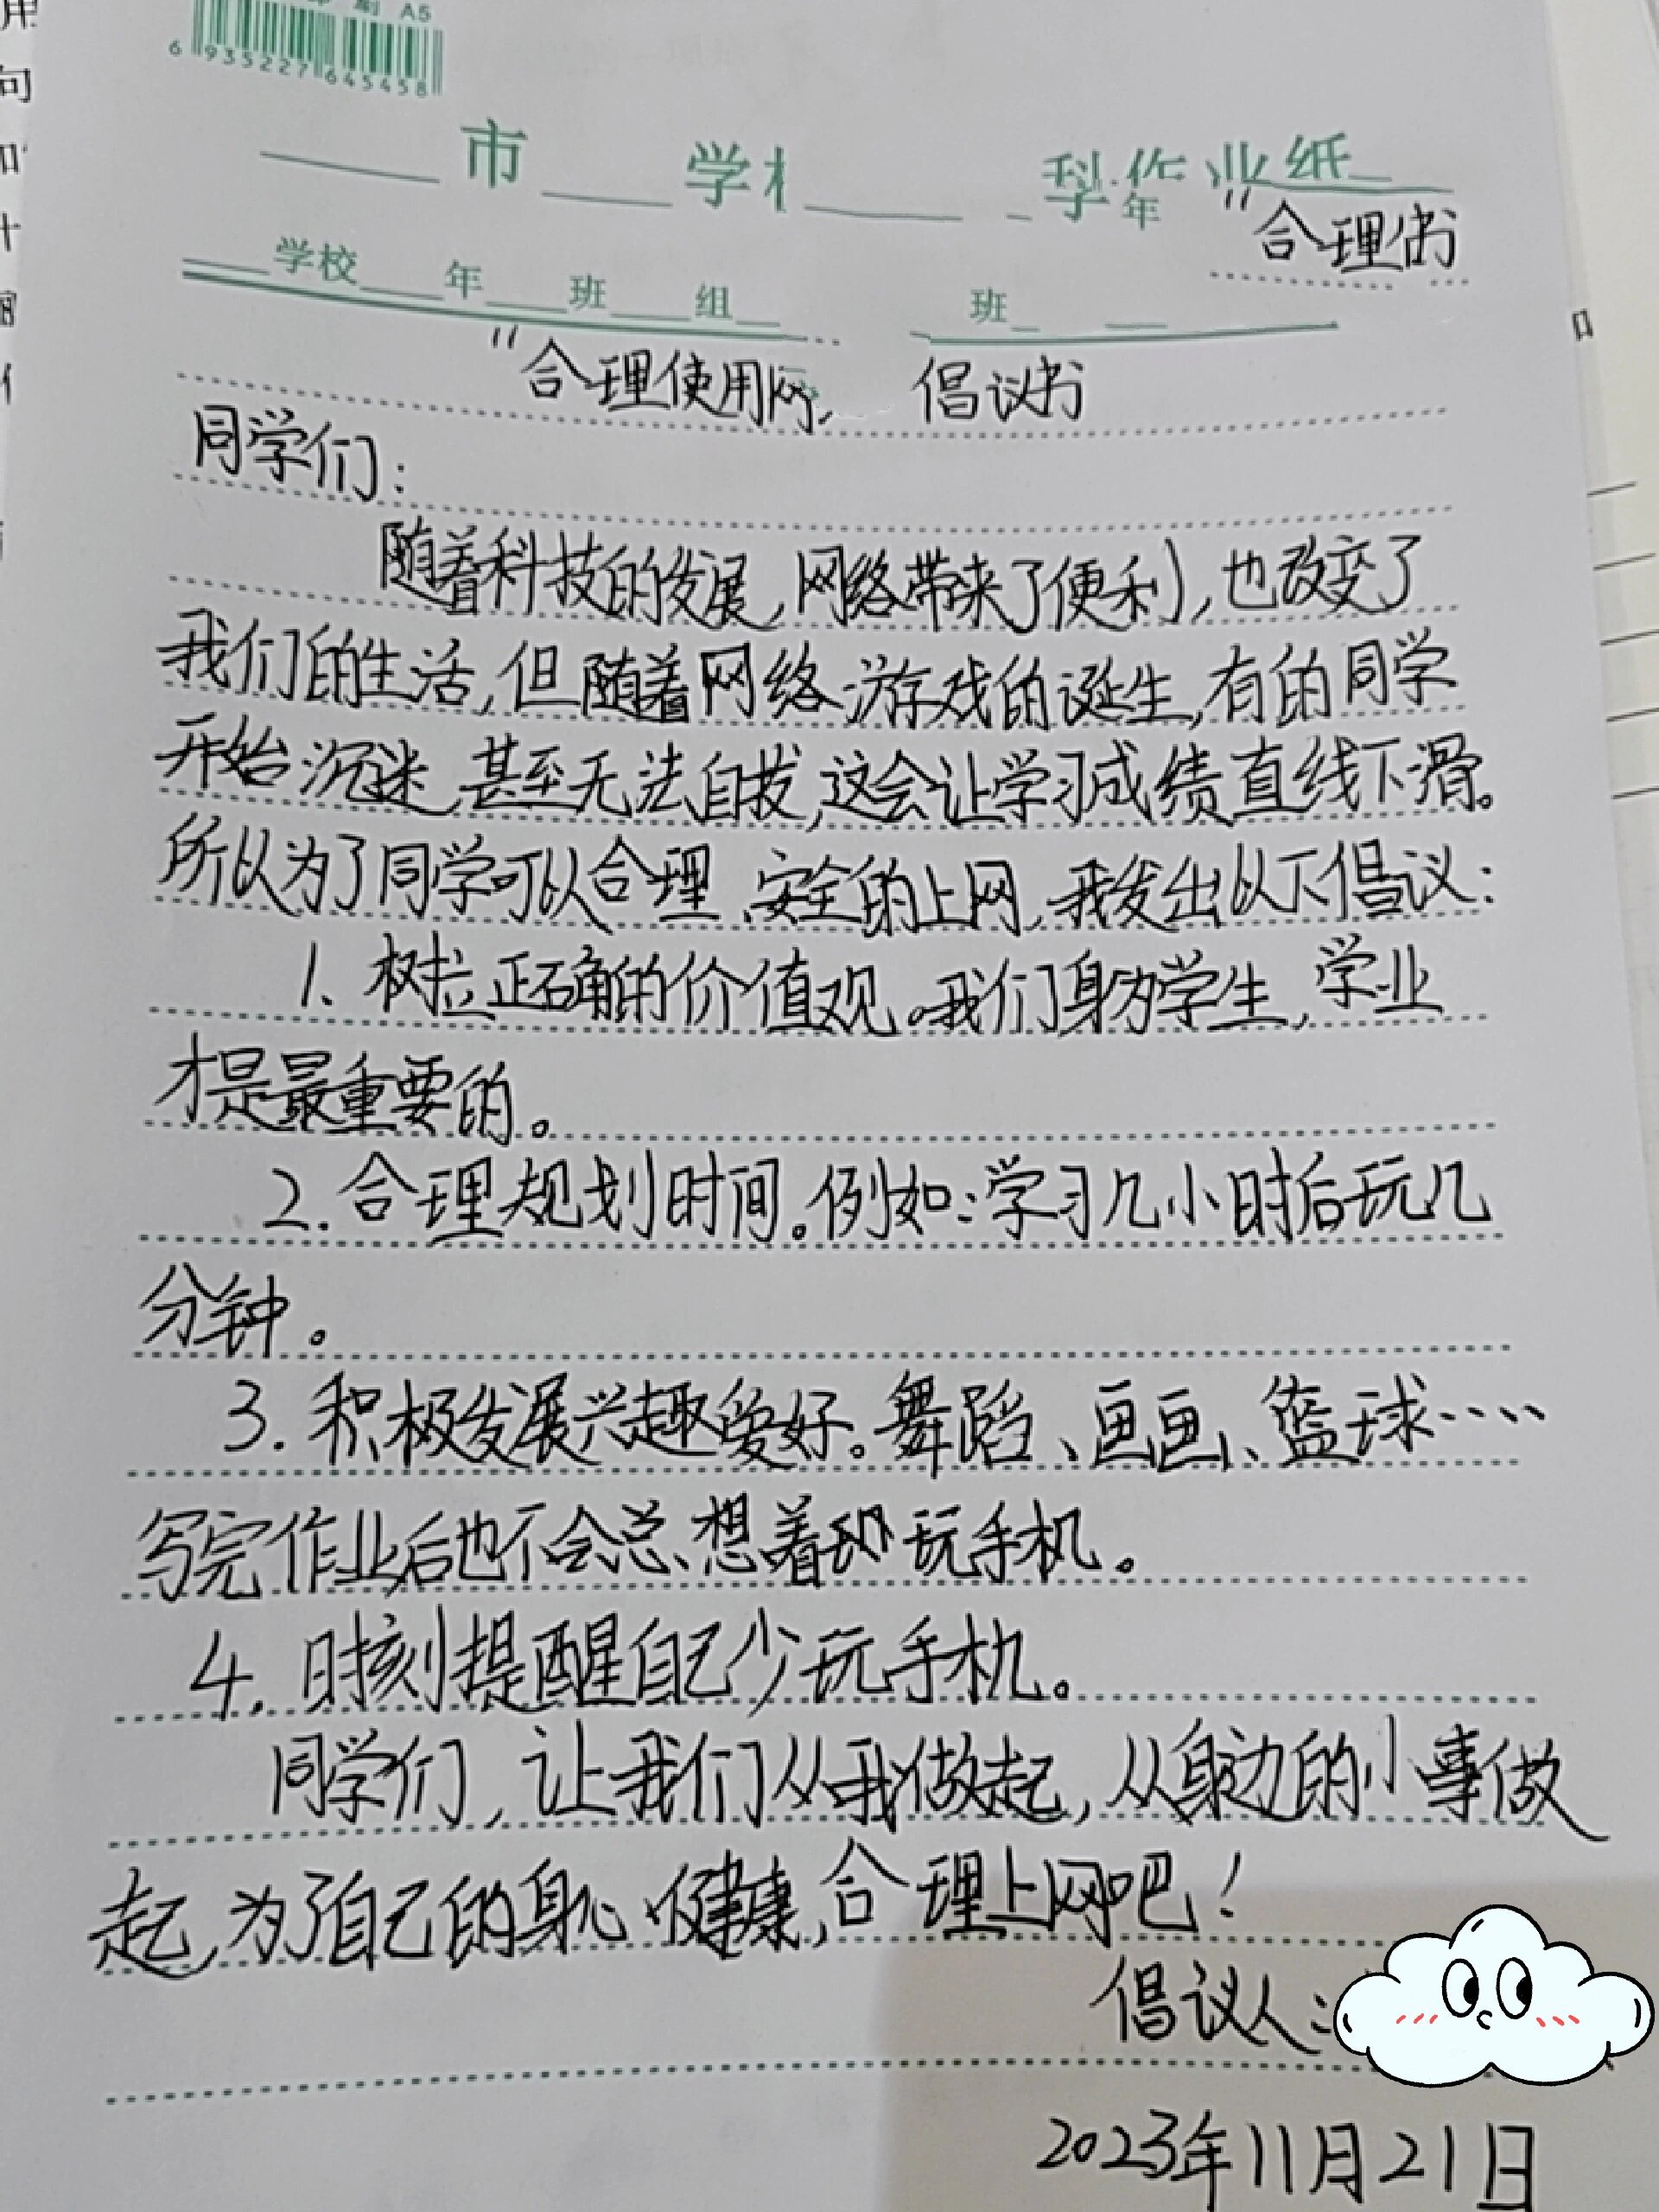 A5
6 935227 645458
市 学 科作业纸
年
"合理
学校 年 班 组 班
"合理使用网 倡议书
同学们：
随着科技的发展,网络带来了便利,也改变了
我们的生活,但随着网络游戏的诞生,有的同学
开始沉迷,甚至无法自拔,这会让学习成绩直线下滑。
所以为了同学可以合理、安全的上网,我发出以下倡议：
1、树立正确的价值观。我们身为学生,学业
才是最重要的。
2.合理规划时间。例如：学习几小时后玩几
分钟。
3.积极发展兴趣爱好。舞蹈、画画、篮球……
写完作业后也不会总想着玩手机。
4.时刻提醒自己少玩手机。
同学们,让我们从我做起,从身边的小事做
起,为了自己的身心健康,合理上网吧！
倡议人：
2023年11月21日